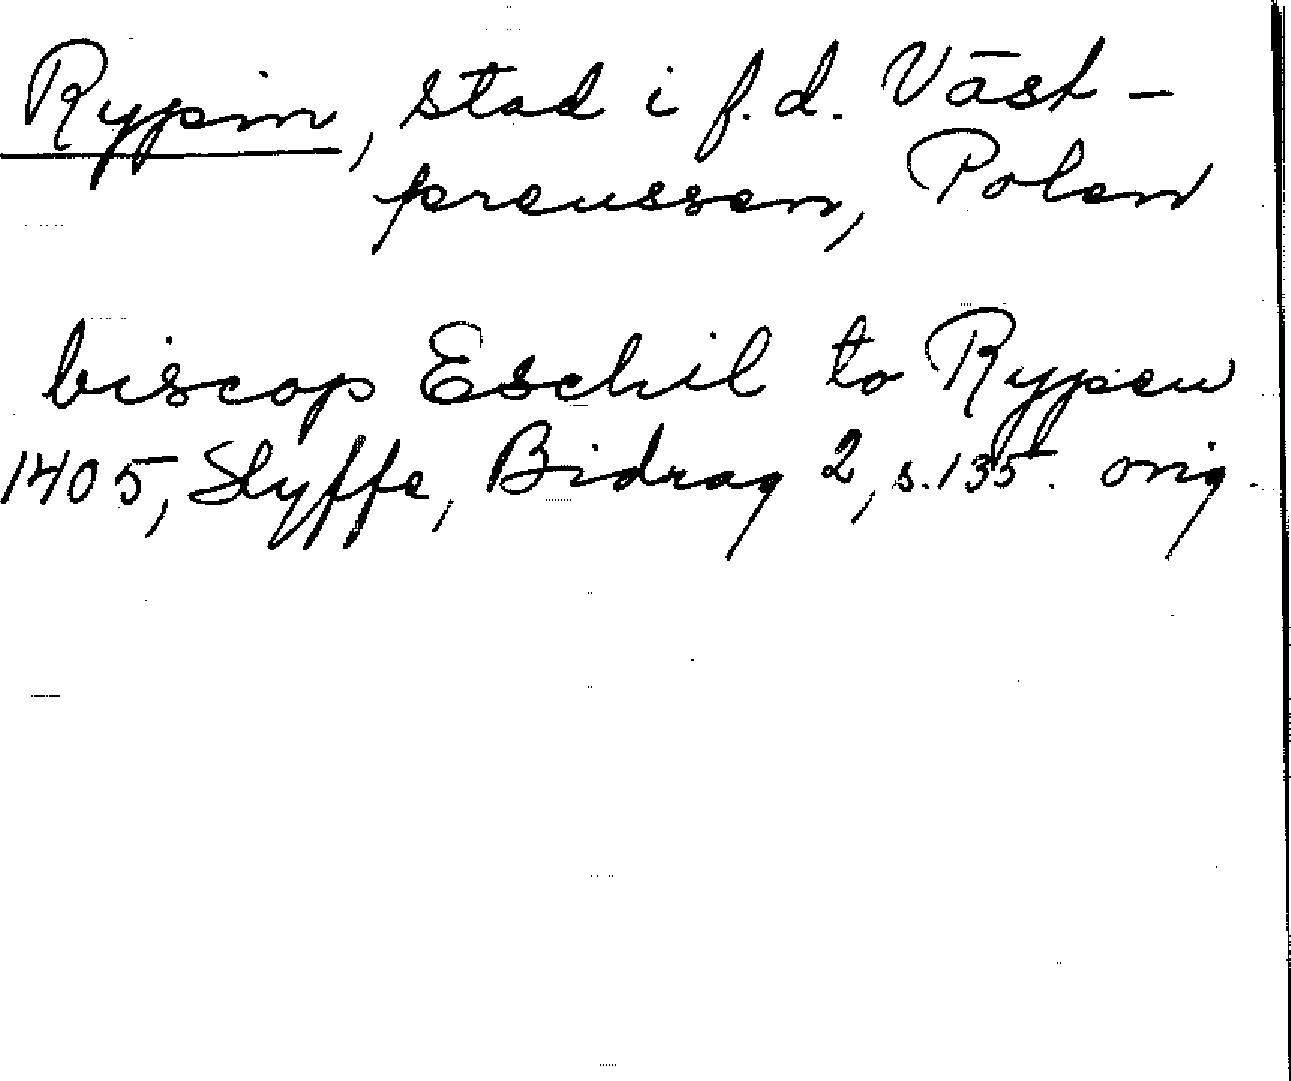 Rypin, stad i f.d. Väst-
preussen, Polen
biscop Eschil to Rypen
1405, Styffe, Bidrag 2, s. 135. orig.